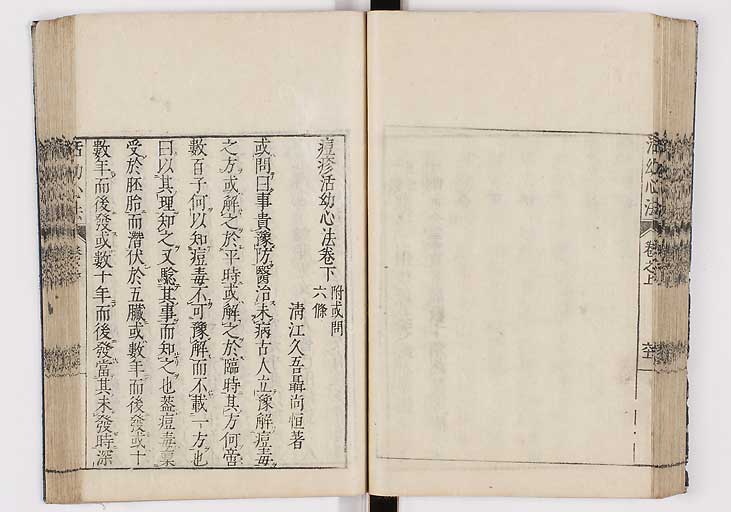 活幼心法
卷之上
痘疹活幼心法卷下
附或問
六條
清江久吾聶尚恒著
或問曰事貴豫防醫治未病古人立豫解痘毒
之方或解之於平時或解之於臨時其方何啻
數百子何以知痘毒不可豫解而不載一方也
曰以其理知之又驗其事而知之也蓋痘毒稟
受於胚胎而潛伏於五臟或數年而後發或十
數年而後發或數十年而後發當其未發時深
活幼心法